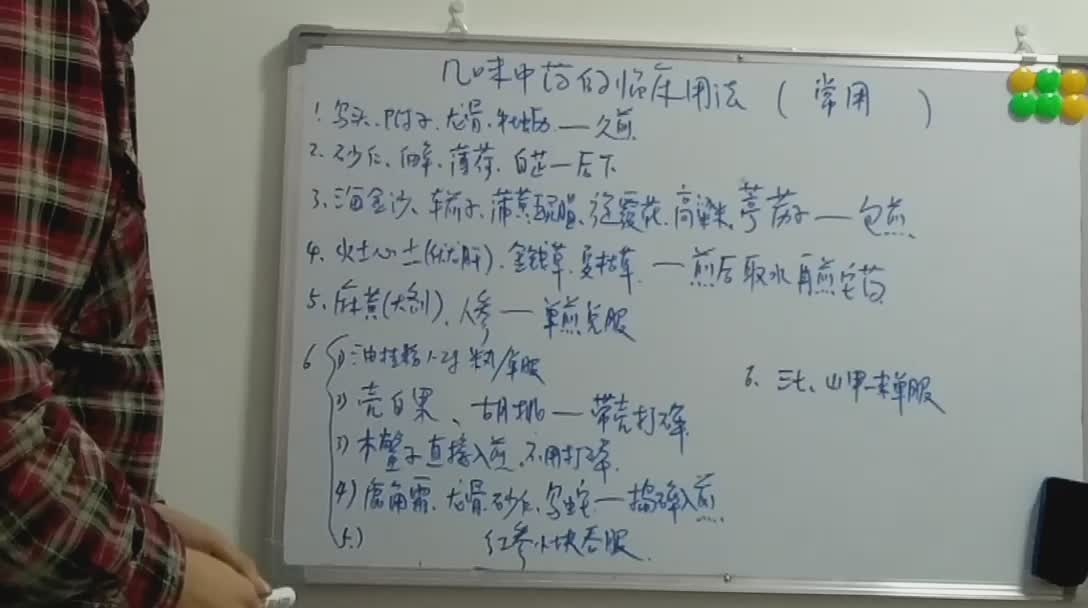 几味中药的临床用法（常用）
1. 乌头、附子、龙骨、牡蛎 — 久煎
2. 砂仁、白蔻、薄荷、白芷 — 后下
3. 海金沙、车前子、蒲黄、旋覆花、高粱米、葶苈子 — 包煎
4. 灶心土(伏龙肝)、金钱草、夏枯草 — 煎后取水再煎它药
5. 麻黄(大剂)、人参 — 单煎兑服
6 1) 油桂粉1-2g
6. 三七、山甲 — 末单服
2) 壳白果、胡桃 — 带壳打碎
3) 木鳖子直接入煎，不用打碎.
4) 鹿角霜、龙骨、砂仁、乌蛇 — 捣碎入煎
5.) 红参小块吞服.